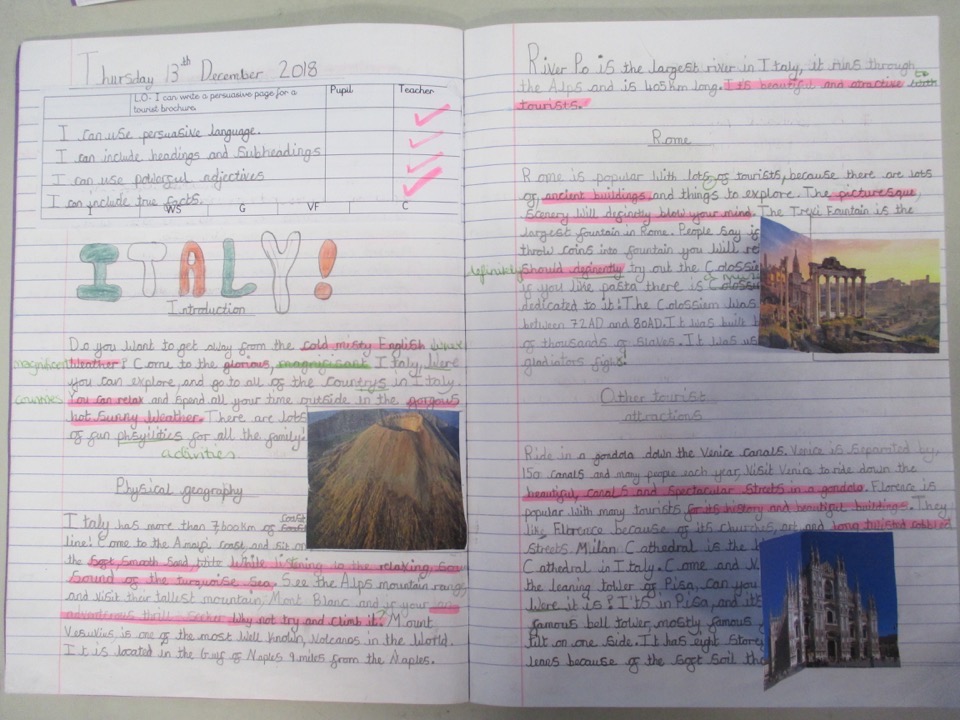 Thursday 13th December 2018
LO- I can write a persuasive page for a tourist brochure.
Pupil
Teacher
I can use persuasive language.
I can include headings and subheadings
I can use powerful adjectives
I can include true facts.
I WS G VF C
ITALY!
Introduction
Do you want to get away from the cold misty English
magnificent weather? Come to the glorious, Italy, were
you can explore, and go to all of the countrys in Italy.
countries You can relax and spend all your time outside in the gorgous
hot sunny weather. There are lots
of fun physilities for all the family!
activities
Physical geography
Italy has more than 7600km of coast
line! Come to the Amalfi coast, and sit on
the soft smooth sand, while listening to the relaxing
sound of the turquoise sea. See the Alps mountain range
and visit their tallest mountain, Mont Blanc and if your
adventerous thrill seeker why not try and climb it? Mount
Vesuvius is one of the most well known, volcanos in the world.
It is located in the Gulf of Naples 9 miles from the Naples.
River Po is the largest river in Italy, it runs through
the Alps and is 405km long. It is beautiful and atractive to
tourists.
Rome
Rome is popular with lots of tourists, because there are lots
of ancient buildings and things to explore. The picturesque,
scenery will definitly blow your mind. The Trevi Fountain is the
largest fountain in Rome. People say if
throw coins into fountain you will
definitely should definently try out the
if you like pasta there is a
dedicated to it! The Colossiem was
between 72AD and 80AD. It was built
of thousands of slaves. It was
gladiators fights!
Other tourist
attractions
Ride in a gondola down the Venice canals. Venice is seperated by,
150 canals and many people each year, visit Venice to ride down the
beautiful, canals and spectacular streets in a gondola. Florence is
popular with many tourists for its history and beautiful buildings. They
like Florence because of its churchis, art and long twisted cobbled
streets. Milan Cathedral is the
Cathedral in Italy. Come and
the leaning tower of Pisa, can you
were it is? It's in Pisa, and it's
famous bell tower, mostly famous
tilt on one side. It has eight
lenes because of the soft soil